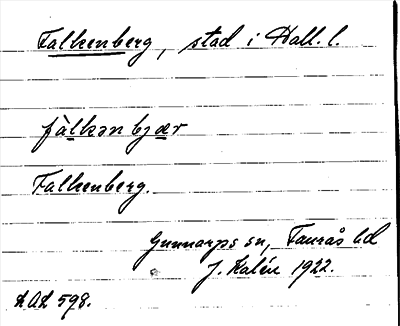 Falkenberg, stad i Hall. l.
fàlkən bjær
Falkenberg.
Gunnarps sn, Faurås hd
J. Kalén 1922.